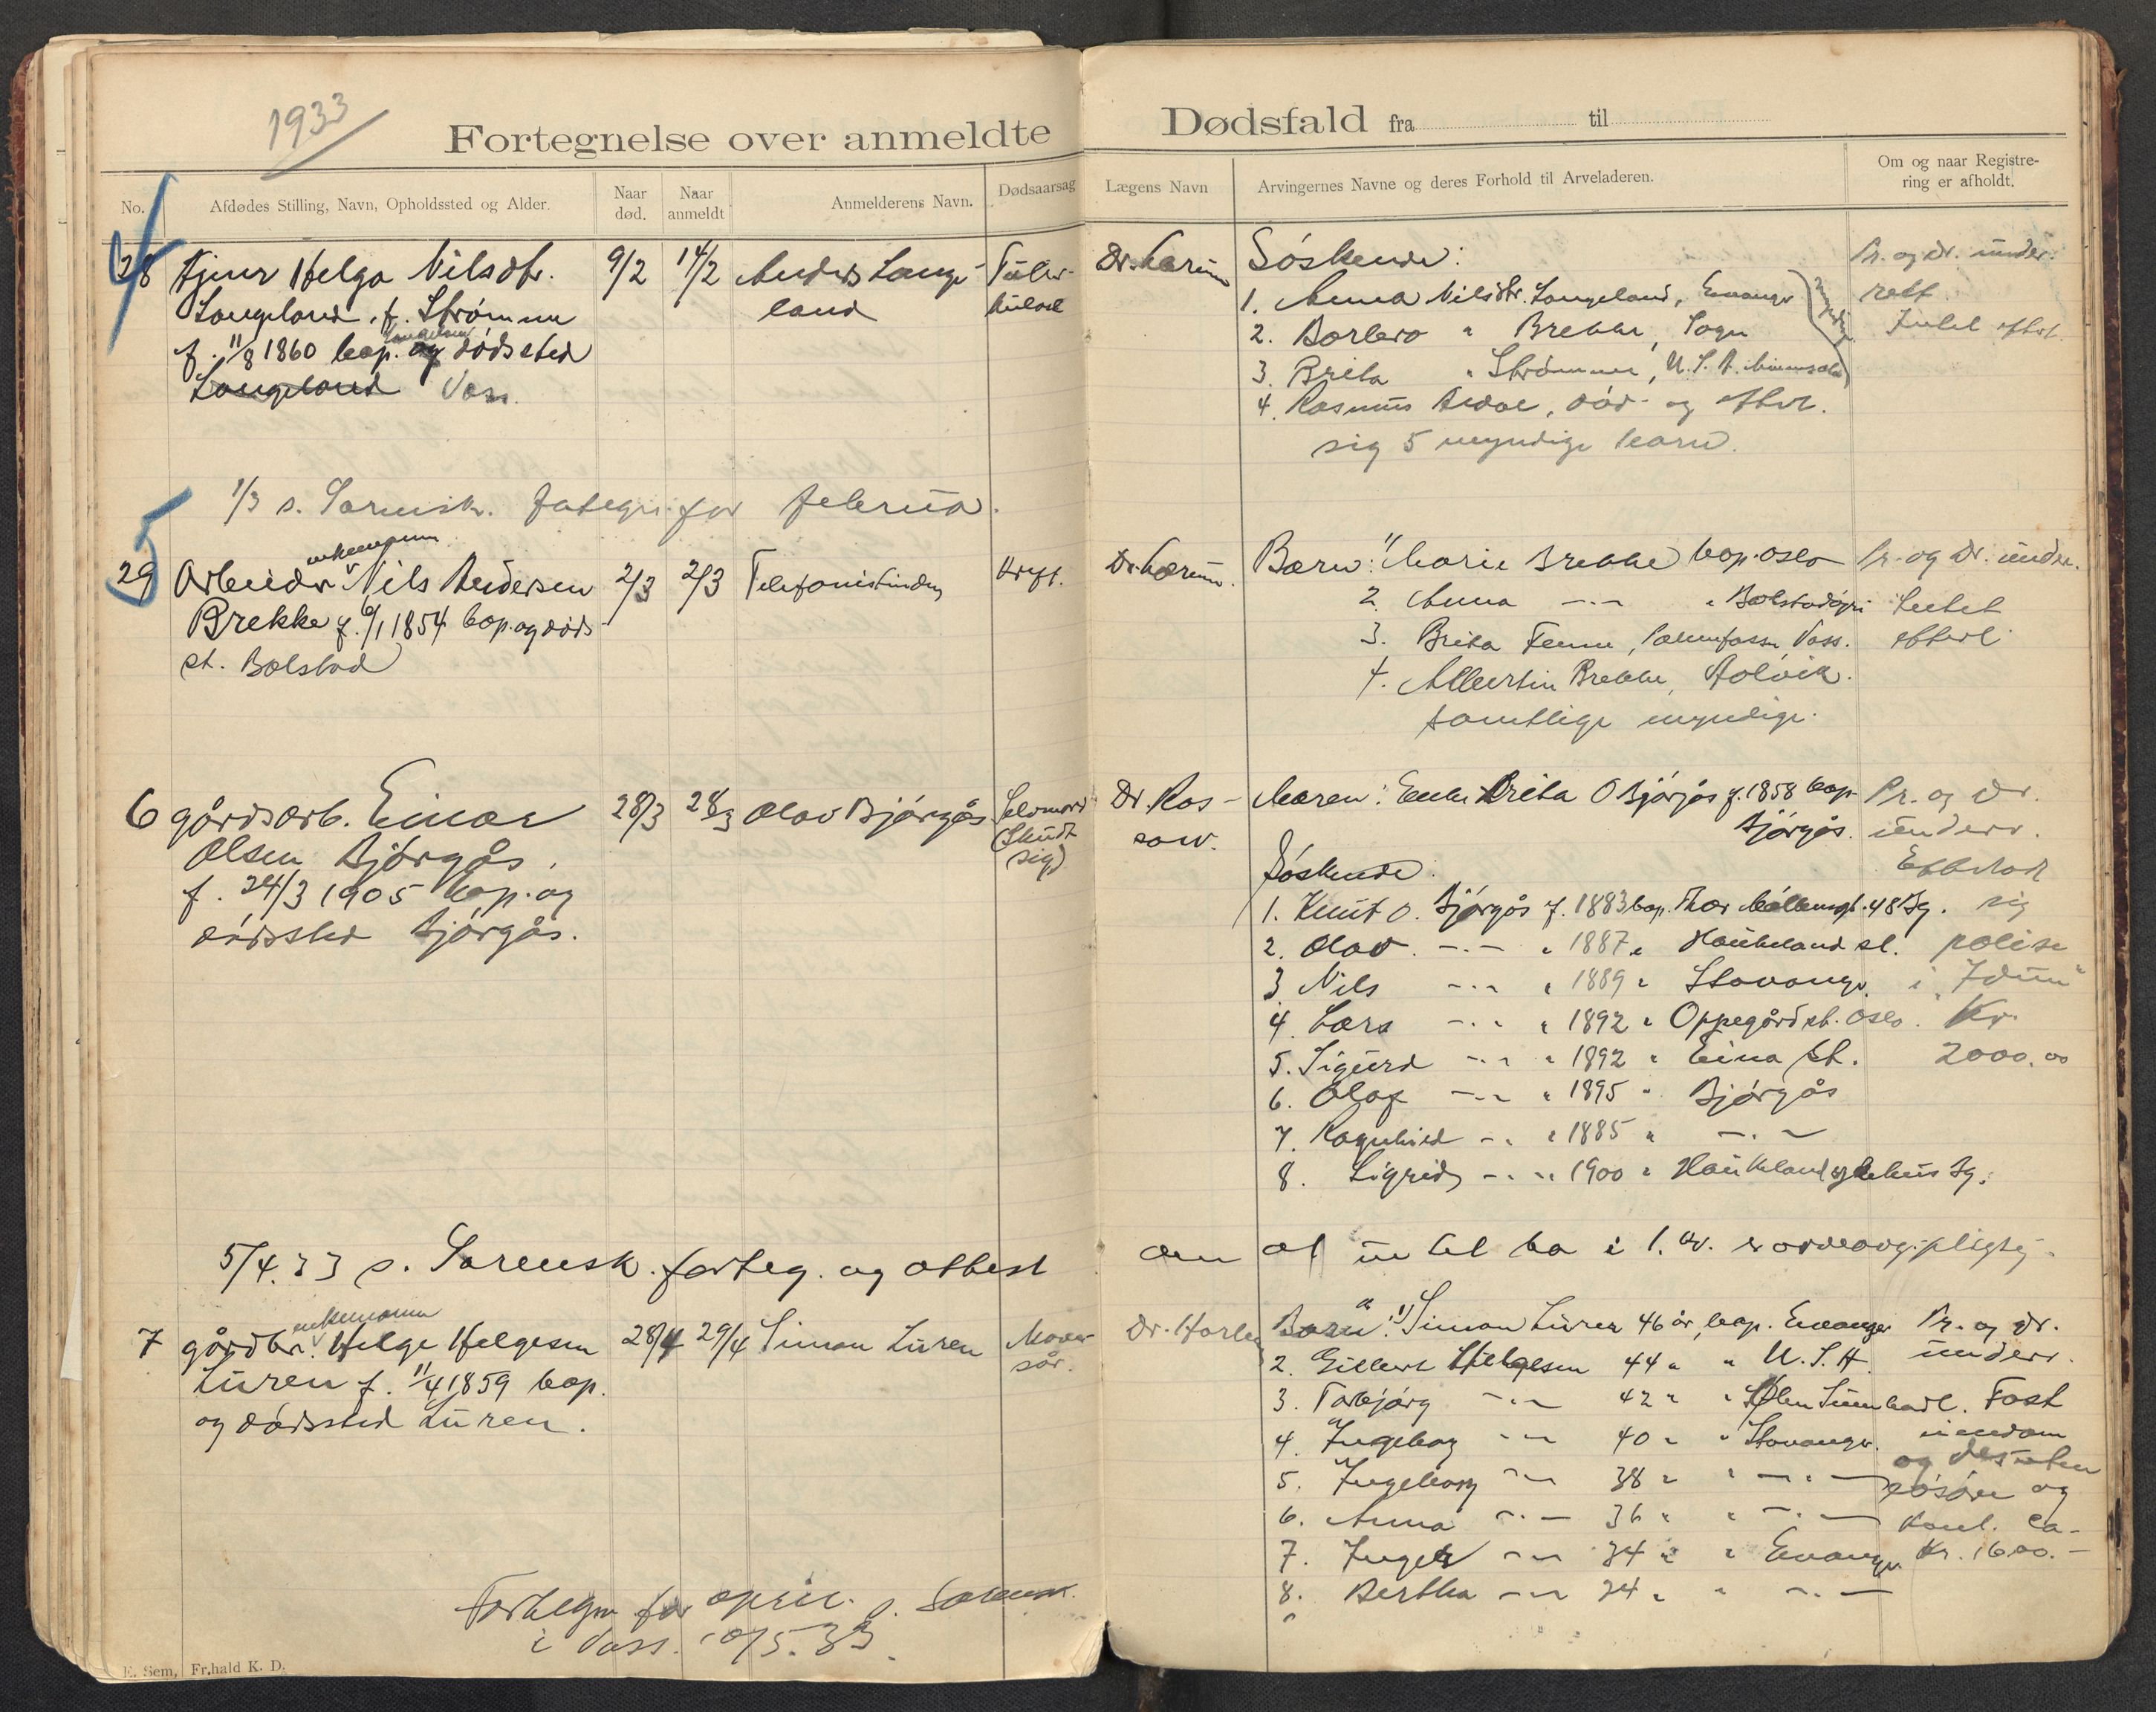 1933
Fortegnelse over anmeldte
Dødsfald fra til
No.
Afdødes Stilling, Navn, Opholdssted og Alder.
Naar død.
Naar anmeldt
Anmelderens Navn.
Dødsaarsag
Lægens Navn
Arvingernes Navne og deres Forhold til Arveladeren.
Om og naar Registre-
ring er afholdt.
28 Helga Nilsdtr. 9/2 14/2 Anders Lange-
Langeland, f. Strømme land
f. 11/8 1860 bop. og dødssted
Langeland Voss.
Søskende:
1. Anna Nilsdtr. Langeland, Evanger
2. Barbro " Brekke, Sogn
3. Brita " Strømme, U.S.A.
4. Rasmus død og efterl.
sig 5 myndige barn.
Pr. og Dr. under-
rett
Intet efterl.
1/3 s. Sorensk. for februa.
enkemann
29 Arbeider Nils Andersen 2/3 2/3 Telefonistinden Kreft.
Brekke f. 6/1 1854 bop. og døds
st. Bolstad
Barn: 1) Marie Brekke bop. Oslo
2. Anna -"- " Bolstadøyri
3. Brita Femme, Voss.
4. Albertin Brekke, Aolvik.
samtlige myndige.
Pr. og Dr. under.
Intet
efterl
6 gårdsarb. Einar 28/3 28/3 Olav Bjørgås Selvmord
(Skudt
sig)
Olsen Bjørgås.
f. 24/3 1905 bop. og
dødssted Bjørgås.
Dr. Ros-
sow.
Moren: Enke Brita O Bjørgås f. 1858 bop.
Bjørgås.
Søskende:
1. Knut O. Bjørgås f. 1883 bop. Thor Møllensgt. 48 Bg.
2. Olav -"- " 1887 " Haukeland st.
3 Nils -"- " 1889 " Stavanger
4. Lars -"- " 1892 " Oppegård st. Oslo.
5. Sigurd -"- " 1892 " Eina st.
6. Olaf -"- " 1895 " Bjørgås
7. Ragnhild -"- " 1885 " -"-
8. Sigrid -"- " 1900 " Haukeland sykehus Bg.
Pr. og Dr.
underr.
Efterlot
sig
polise
i "Idun"
Kr.
2000.00
5/4.33 s. Sorensk. forteg. og attest
om at
enkemann
7 gårdbr. Helge Helgesen 28/4 29/4 Simon Luren
Luren f. 11/4 1859 bop.
og dødssted Luren.
Barn: 1) Simon Luren 46 år, bop. Evanger
2. Gilbert Helgesen 44 " " U.S.A
3. Torbjørg -"- 42 "
4. Ingeborg -"- 40 " " Stavanger.
5. Ingeborg -"- 38 " " -"-
6. Anna -"- 36 " " -"-
7. Inger -"- 34 " " Evanger
8. Bertha -"- 24 " " -"-
Pr. og Dr.
underr.
Fast
eiendom
og desuten
løsøre og
kont. ca-
Kr. 1600.-
Fortegn for april. s. Sorensk.
i Voss. 10/5.33.
E. Sem, Fr.hald K. D.